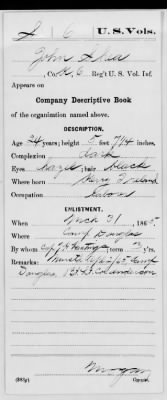 S 6 U. S. Vols.
John Shea
, Co. K, 6 Reg't U. S. Vol. Inf.
Appears on
Company Descriptive Book
of the organization named above.
DESCRIPTION.
Age 24 years; height 5 feet 7 1/4 inches.
Complexion Dark
Eyes Hazel; hair Black
Where born Ireland
Occupation Laborer
ENLISTMENT.
When Mch 31, 1865.
Where Camp Douglas
By whom Capt ; term 3 y'rs.
Remarks: Camp
Douglas
Morgan
(383g) Copyist.